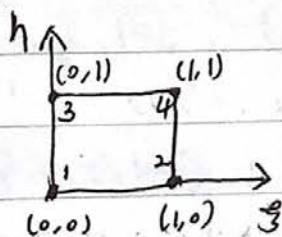 η
(0,1) (1,1)
3 4
1 2
(0,0) (1,0) ξ